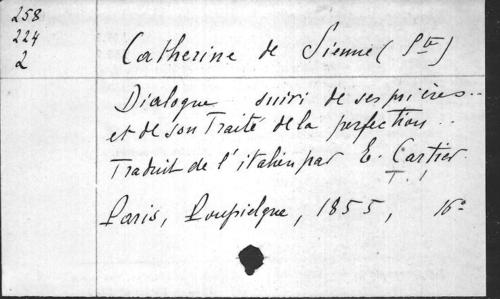 258
224
2
Catherine de Sienne (Ste)
Dialogue suivi de ses prières..
et de son Traité de la perfection..
Traduit de l'italien par E. Cartier.
T. 1
Paris, Poussielgue, 1855, 16°